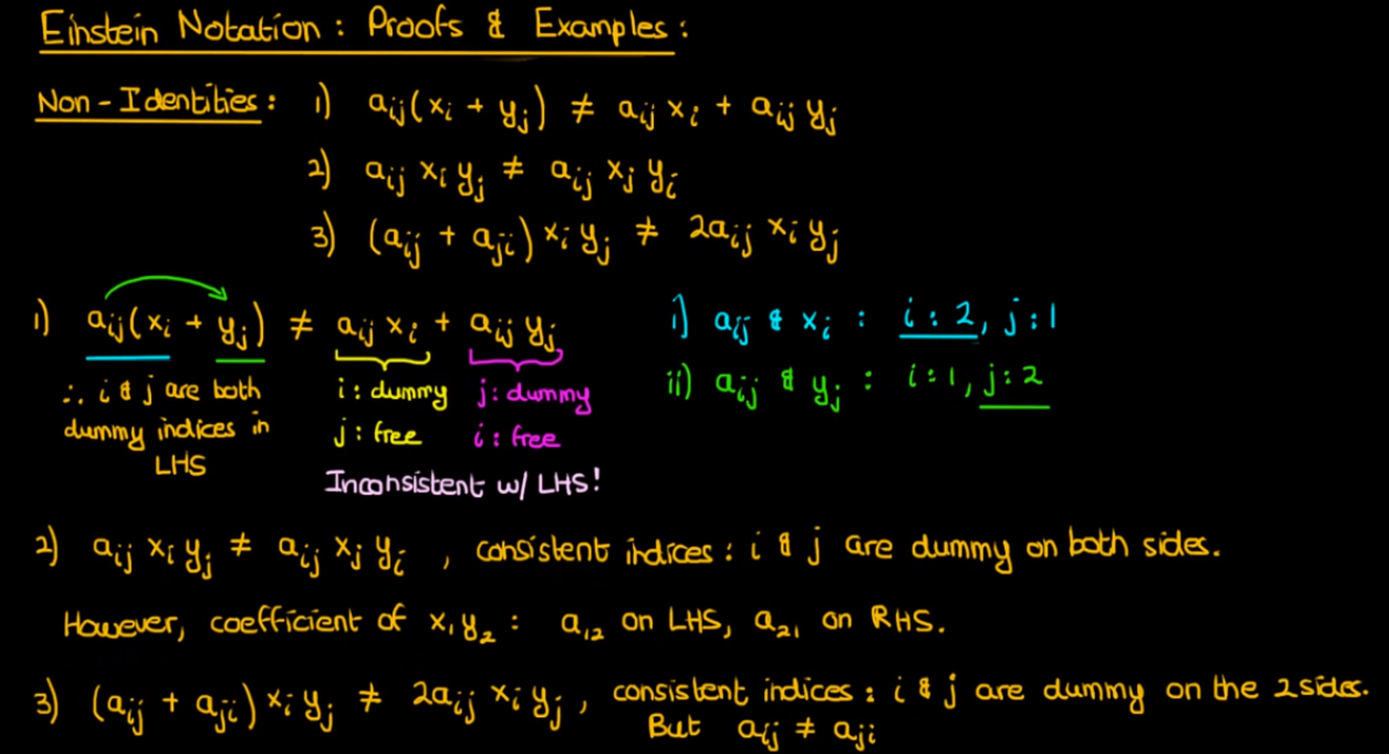 Einstein Notation : Proofs & Examples :
Non - Identities : 1) aᵢⱼ(xᵢ + yⱼ) ≠ aᵢⱼ xᵢ + aᵢⱼ yⱼ
2) aᵢⱼ xᵢ yⱼ ≠ aᵢⱼ xⱼ yᵢ
3) (aᵢⱼ + aⱼᵢ) xᵢ yⱼ ≠ 2aᵢⱼ xᵢ yⱼ
1) aᵢⱼ(xᵢ + yⱼ) ≠ aᵢⱼ xᵢ + aᵢⱼ yⱼ
∴ i & j are both
dummy indices in
LHS
i : dummy
j : free
j : dummy
i : free
Inconsistent w/ LHS!
i) aᵢⱼ & xᵢ : i : 2, j : 1
ii) aᵢⱼ & yⱼ : i : 1, j : 2
2) aᵢⱼ xᵢ yⱼ ≠ aᵢⱼ xⱼ yᵢ , consistent indices : i & j are dummy on both sides.
However, coefficient of x₁y₂ : a₁₂ on LHS, a₂₁ on RHS.
3) (aᵢⱼ + aⱼᵢ) xᵢ yⱼ ≠ 2aᵢⱼ xᵢ yⱼ , consistent indices : i & j are dummy on the 2 sides.
But aᵢⱼ ≠ aⱼᵢ